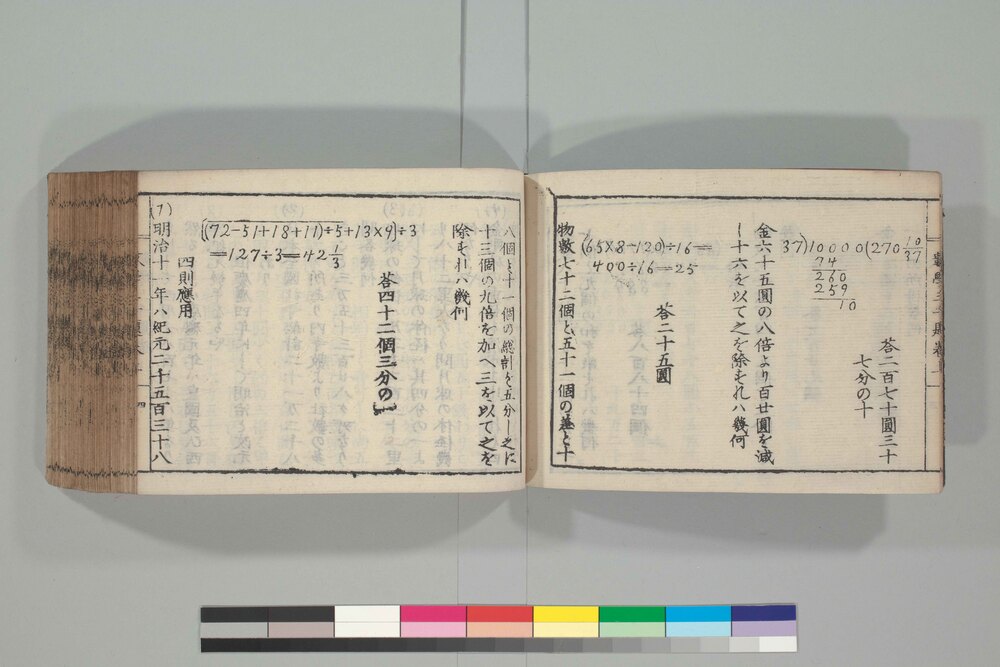 37)10000(270 10/37
74
260
259
10
答二百七十圓三十
七分の十
金六十五圓の八倍より百廿圓を減
し十六を以て之を除すれハ幾何
(65×8-120)÷16=
400÷16=25
答二十五圓
物數七十二個と五十一個の差と十
八個と十一個の總計を五分し之に
十三個の九倍を加へ三を以て之を
除すれハ幾何
((72-51+18+11)÷5+13×9)÷3
=127÷3=42 1/3
答四十二個三分の一
四則應用
(1)明治十一年ハ紀元二千五百三十八